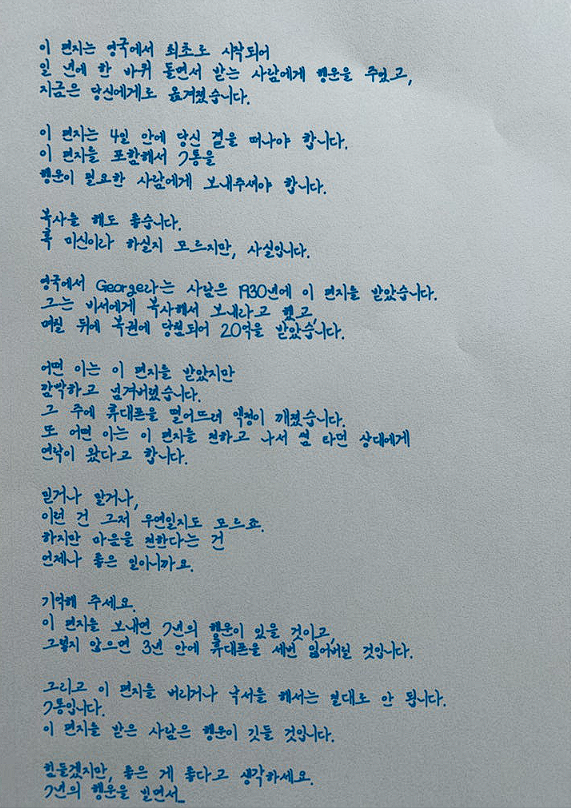 이 편지는 영국에서 최초로 시작되어
일 년에 한 바퀴 돌면서 받는 사람에게 행운을 주었고,
지금은 당신에게로 옮겨졌습니다.
이 편지는 4일 안에 당신 곁을 떠나야 합니다.
이 편지를 포함해서 7통을
행운이 필요한 사람에게 보내주셔야 합니다.
복사를 해도 좋습니다.
혹 미신이라 하실지 모르지만, 사실입니다.
영국에서 George라는 사람은 1930년에 이 편지를 받았습니다.
그는 비서에게 복사해서 보내라고 했고
며칠 뒤에 복권에 당첨되어 20억을 받았습니다.
어떤 이는 이 편지를 받았지만
깜빡하고 넘겨버렸습니다.
그 주에 휴대폰을 떨어뜨려 액정이 깨졌습니다.
또 어떤 이는 이 편지를 전하고 나서 썸 타던 상대에게
연락이 왔다고 합니다.
믿거나 말거나,
이런 건 그저 우연일지도 모르죠.
하지만 마음을 전한다는 건
언제나 좋은 일이니까요.
기억해 주세요.
이 편지를 보내면 7년의 행운이 있을 것이고,
그렇지 않으면 3년 안에 휴대폰을 세번 잃어버릴 것입니다.
그리고 이 편지를 버리거나 낙서를 해서는 절대로 안 됩니다.
7통입니다.
이 편지를 받은 사람은 행운이 깃들 것입니다.
힘들겠지만, 좋은 게 좋다고 생각하세요.
7년의 행운을 빌면서